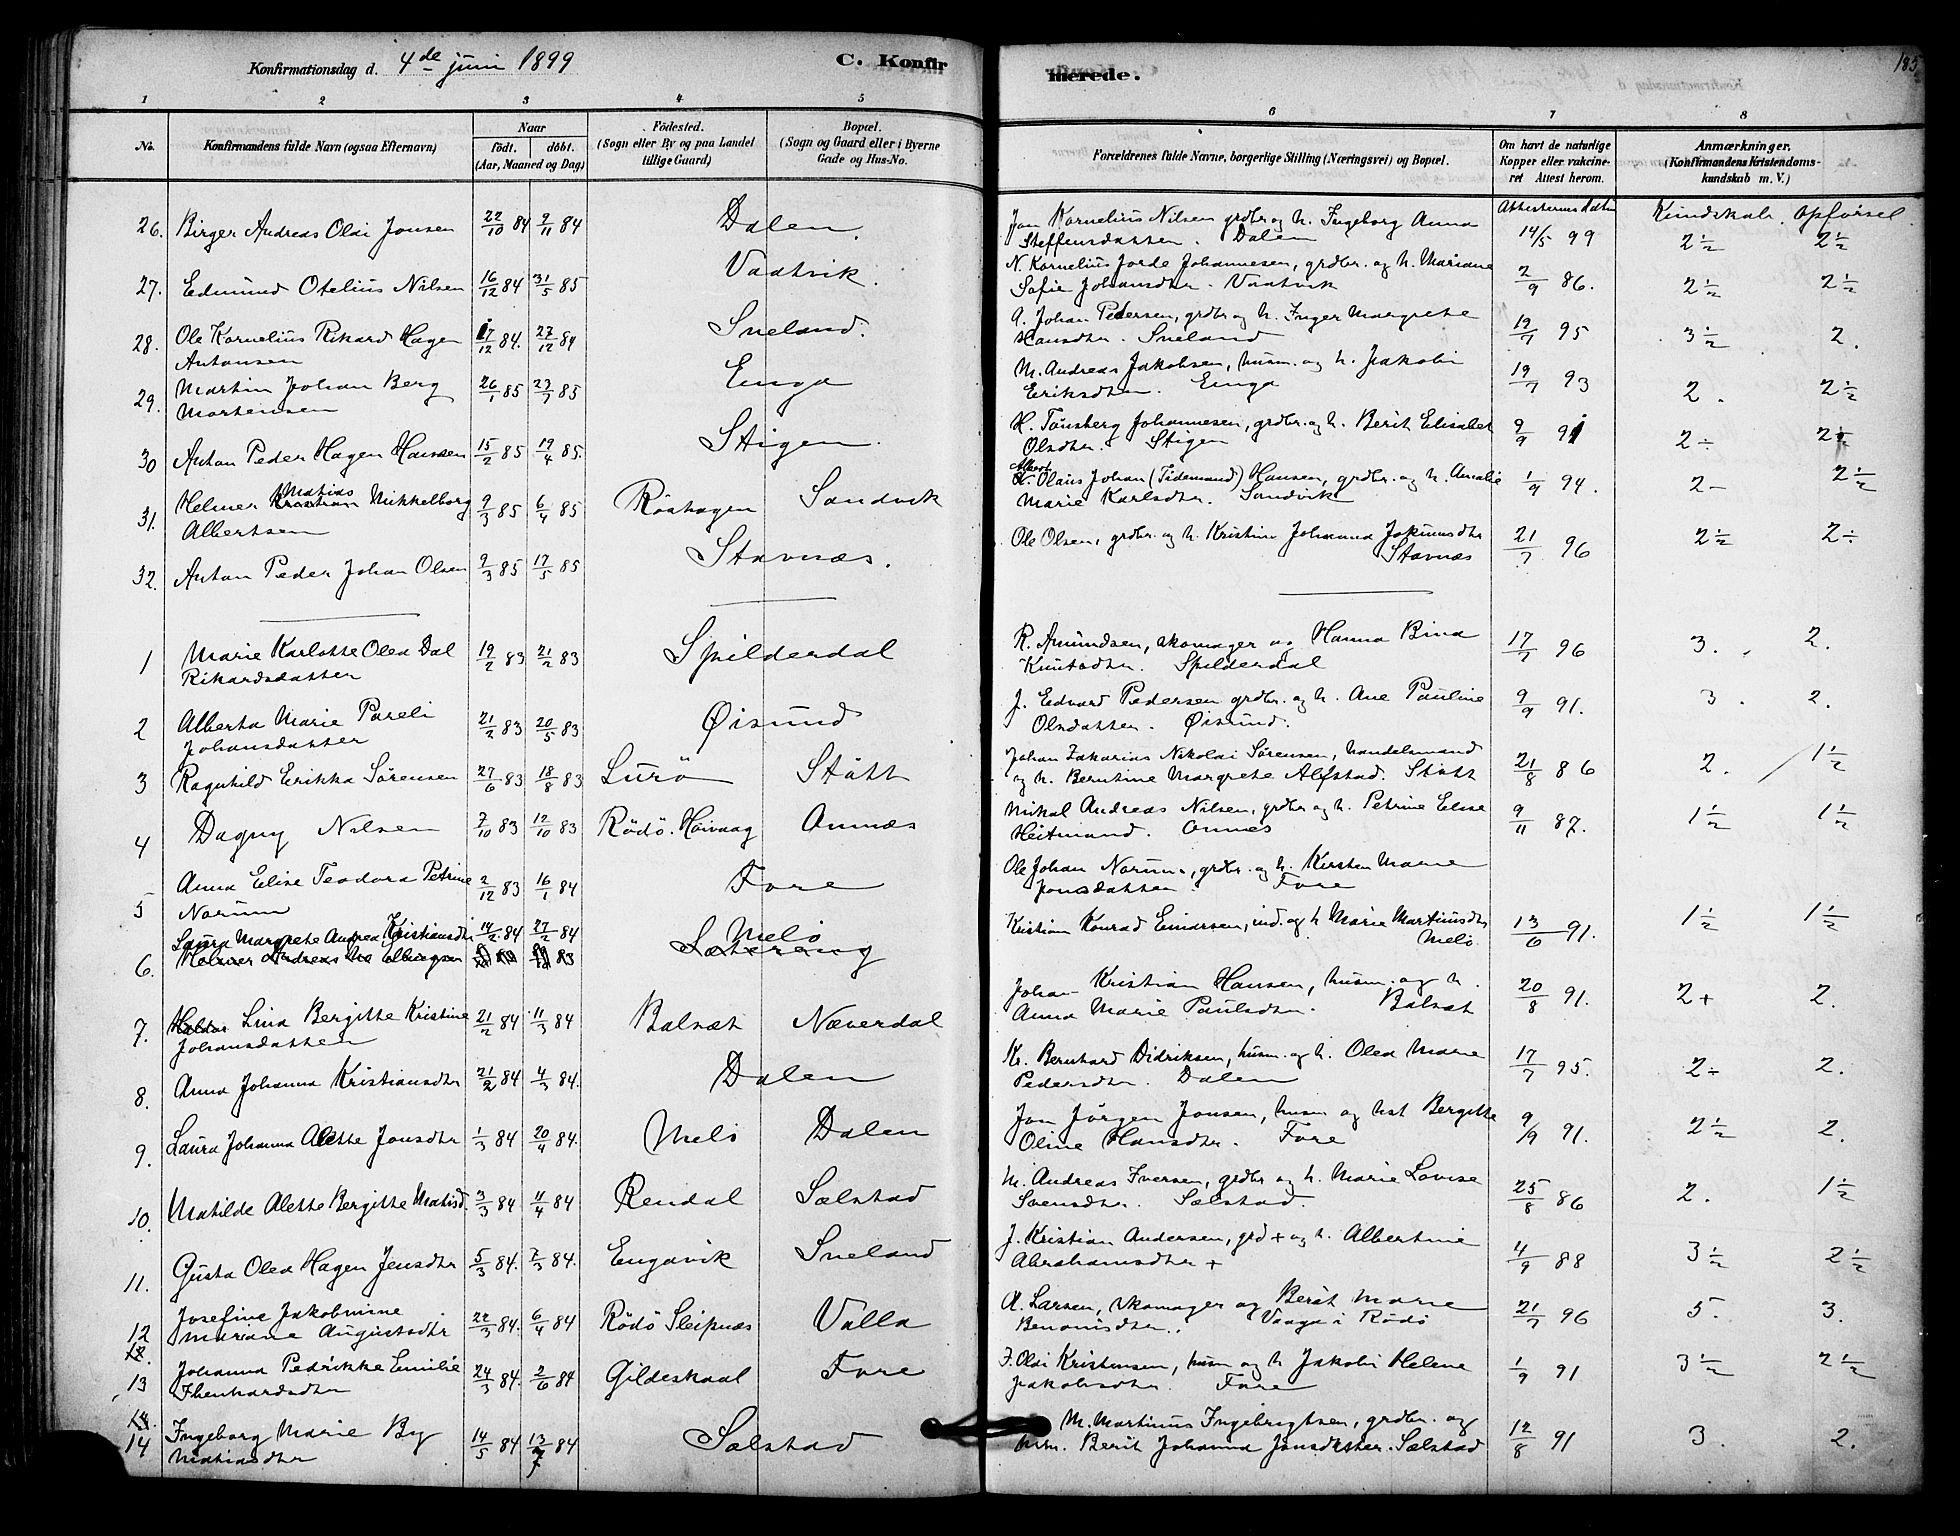 Konfirmationsdag d. 4de juni 1899
C. Konfir
merede.
185
1 2 3 4 5 6 7 8
No.
Konfirmandens fulde Navn (ogsaa Efternavn)
Naar
födt. döbt.
(Aar, Maaned og Dag)
Födested.
(Sogn eller By og paa Landet
tillige Gaard)
Bopæl.
(Sogn og Gaard eller i Byerne
Gade og Hus-No.
Forældrenes fulde Navne, borgerlige Stilling (Næringsvei) og Bopæl.
Om havt de naturlige
Kopper eller vakcine-
ret Attest herom.
Anmærkninger.
(Konfirmandens Kristendoms-
kundskab m. V.)
Attesternes datum Kundskab. Opförsel.
26. Birger Andreas Oldi Jonsen 22/10 84 9/11 84 Dalen.
Jon Kornelius Nilsen grdbr og h. Ingeborg Anna
Steffensdatter. Dalen 14/5 99 2½ 2½
27. Edmund Otelius Nilsen 16/12 84 31/5 85 Vaatvik.
N. Kornelius Jorde Johannesen, grdbr. og h. Mariane
Sofie Johansdtr. Vaatvik 2/9 86. 2½ 2½
28. Ole Kornelius Rikard Hagen
Antonsen 17/12 84. 27/12 84 Sneland.
A. Johan Pedersen, grdbr og h. Inger Margrete
Hansdtr. Sneland 19/7 95 3½ 2.
29. Martin Johan Berg
Mortensen 26/1 85 23/7 85 Enga
M. Andreas Jakobsen, husm. og h. Jakobi
Eriksdtr. Enga 19/7 93 2. 2½
30 Anton Peder Hagen Hansen 15/2 85 19/4 85. Stigen.
H. Tönsberg Johannesen, grdbr. og h. Berit Elisabet
Olsdtr. Stigen 9/9 91 2÷ 2÷
31. Helmer Matias Mikkelborg
Albertsen 9/3 85 6/4 85 Röshagen Sandvik
Albert Olaus Johan (Tidemand) Hansen, grdbr. og h. Amalie
Marie Karlsdtr. Sandvik 1/9 94. 2- 2½
32. Anton Peder Johan Olsen 9/3 85 17/5 85 Stavnæs.
Ole Olsen, grdbr. og h. Kristine Johanna Joakimsdtr
Stavnæs 21/7 96 2½ 2÷
1 Marie Karlotte Olea Dal
Rikardsdatter 19/2 83 21/2 83 Spilderdal
R. Amundsen, skomager og Hanna Bina
Knutsdtr. Spilderdal 17/7 96 3. 2.
2 Alberta Marie Pareli
Johansdatter 21/2 83 20/5 83 Øisund
J. Edvard Pedersen grdbr. og h. Ane Pauline
Olsdatter. Øisund. 9/9 91. 3. 2.
3 Ragnhild Erikka Sörensen 27/6 83 18/8 83 Lurö Stött
Johan Zakarias Nikolai Sörensen, handelsmand
og h. Berntine Margrete Alfstad. Stött 21/8 86 2. 1½
4 Dagny Nilsen 7/10 83 12/10 83 Rödö. Höivaag Ornnæs
Mikal Andreas Nilsen, grdbr og h. Petrine Elise
Heitmand. Ornes 9/11 87. 1½ 1½
5 Anna Elise Teodora Petrine
Norum 2/12 83 16/1 84 Fore
Ole Johan Norum, grdbr. og h. Kirsten Marie
Jonsdatter. Fore
6. Laura Margrete Andrea Kristiansdtr 14/2 84 27/2 84 Melö
Kristian Konrad Einarsen, ind. og h Marie Martinusdtr
Melö 13/6 91. 1½ 1½
7. Lina Bergitte Kristine
Johansdatter 21/2 84 11/3 84 Balvæt Næverdal
Johan Kristian Hansen, husm. og h.
Anna Marie Paulsdtr. Balvat 20/8 91. 2+ 2.
8. Anna Johanna Kristiansdtr 21/2 84 4/3 84. Dalen
Kr. Bernhard Didriksen, husm. og h. Olea Marie
Pedersdtr. Dalen 17/7 95. 2÷ 2.
9. Laura Johanna Alette Jonsdtr 1/3 84 20/4 84. Melö Dalen
Jon Jörgen Jonsen, husm og hst Bergitte
Oline Hansdtr. Fore 9/9 91. 2½ 2.
10. Matilde Alette Bergitte Matisd. 3/3 84 11/4 84 Rendal Sælstad
M. Andreas Iversen, grdbr og h. Marie Lovise
Svensdtr. Sælstad. 25/8 86 2. 1½
11. Gusta Olea Hagen Jensdtr 5/3 84. 7/3 84. Engavik Sneland
J. Kristian Andersen, grd + og h. Albertine
Abrahamsdtr + 4/9 88 3½ 2½
12 Josefine Jakobmine
Mariane Augustsdtr 22/3 84. 6/4 84 Rödö Sleipnæs Valla
A. Larsen, skomager og Berit Marie
Benonisdtr. Vaaga i Rödö 21/7 96 5. 3.
13 Johanna Pedrikke Emilie
Ihenhardsdtr 24/3 84. 2/6 84 Gildeskaal Fore
I. Oldi Kristensen, husm og h Jakobi Helene
Jakobsdtr. Fore 1/9 91 3½ 2½
14 Ingeborg Marie By
Matiasdtr 14/5 84 13/7 84 Sælstad
M. Martinus Ingebrigtsen, grdbr. og
hstr. Berit Johanna Jonsdatter. Sælstad 12/8 91 3. 2.